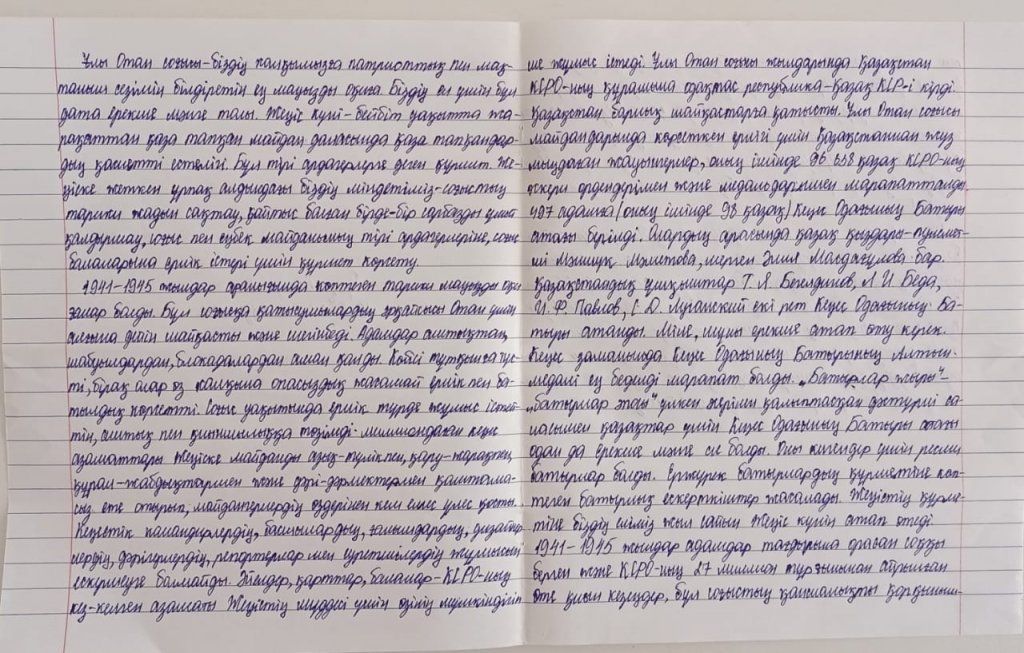 Ұлы Отан соғысы-біздің халқымызға патриоттық пен мақ-
таныш сезімін білдіретін ең маңызды оқиға. Біздің ел үшін бұл
дата ерекше мәнге толы. Жеңіс күні-бейбіт уақытта жа-
рақаттан қаза тапқан майдан даласында қаза тапқандар-
дың қасиетті естелігі. Бұл тірі ардагерлерге деген құрмет. Же-
ңіске жеткен ұрпақ алдындағы біздің міндетіміз-соғыстың
тарихи жадын сақтау, қайтыс болған бірде-бір сарбазды ұмыт
қалдырмау, соғыс пен еңбек майданының тірі ардагерлеріне, соғыс
балаларына ерлік істері үшін құрмет көрсету.
1941-1945 жылдар аралығында көптеген тарихи маңызды оқи-
ғалар болды. Бұл соғысқа қатысушылардың әрқайсысы Отан үшін
соңына дейін шайқасты және шегінбеді. Адамдар аштықтан,
шабуылдардан, блокадалардан аман қалды. Көбісі тұтқынға түс-
ті, бірақ олар өз халқына опасыздық жасамай ерлік пен ба-
тылдық көрсетті. Соғыс уақытында ерлік түрде жұмыс істей-
тін, аштық пен қиыншылыққа төзімді-миллиондаған кеңес
азаматтары Жеңіске майданды азық-түлікпен, қару-жарақпен,
құрал-жабдықтармен және дәрі-дәрмектермен қамтама-
сыз ете отырып, майдангерлердің өздерінен кем емес үлес қосты.
Кеңестік командирлердің, басшылардың, ғалымдардың, дизайн-
ердің, дәрігерлердің, репортерлар мен суретшілердің жұмысын
ескермеуге болмайды. Әйелдер, қарттар, балалар-КСРО-ның
кез-келген азаматы Жеңістің мүддесі үшін өзінің мүмкіндігін-
ше жұмыс істеді. Ұлы Отан соғысы жылдарында Қазақстан
КСРО-ның құрамына одақтас республика-Қазақ КСР-і кірді.
Қазақстан барлық шайқастарға қатысты. Ұлы Отан соғысы
майдандарында көрсеткен ерлігі үшін Қазақстаннан жүз
мыңдаған жауынгерлер, оның ішінде 96 638 қазақ КСРО-ның
әскери ордендерімен және медальдарымен марапатталды
497 адамға (оның ішінде 98 қазақ) Кеңес Одағының Батыры
атағы берілді. Олардың арасында қазақ қыздары-пулемет-
ші Мәншүк Мәметова, мерген Әлия Молдағұлова бар.
Қазақстандық ұшқыштар Т. Я. Бегелдинов, Л. И Беда,
И. Ф. Павлов, С. Д. Луганский екі рет Кеңес Одағының Ба-
тыры атанды. Міне, мұны ерекше атап өту керек.
Кеңес заманында Кеңес Одағының Батырының Алтын
медалі ең беделді марапат болды. „Батырлар жыры"-
„батырлар эпосы" үлкен жерімен қалыптасқан дәстүрлі са-
насымен қазақтар үшін Кеңес Одағының Батыры атағы
одан да ерекше мәнге ие болды. Осы кісілер үшін ресми
батырлар болды. Ержүрек батырлардың құрметіне көп-
теген батырлық ескерткіштер жасалады. Жеңістің құрме-
тіне біздің еліміз жыл сайын Жеңіс күнін атап өтеді
1941-1945 жылдар адамдар тағдырына орасан соққы
берген және КСРО-ның 27 миллион тұрғынынан айрылған
өте қиын кезеңдер, бұл соғыстың қаншалықты қарқынын-